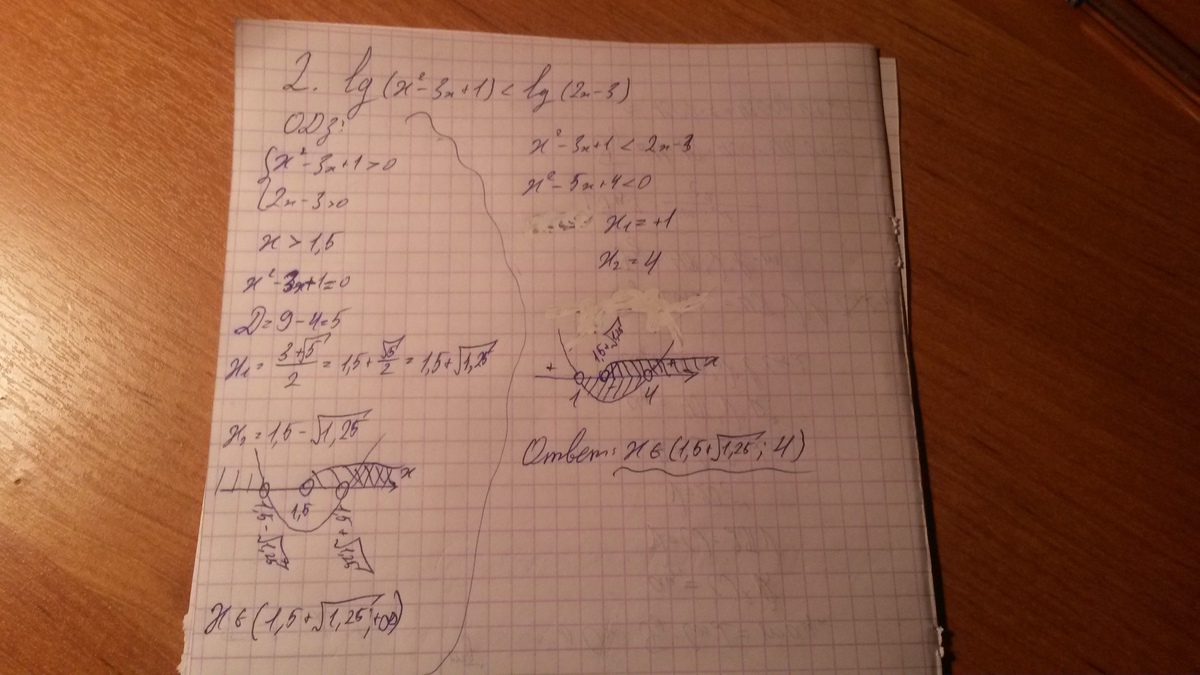 2. lg(x²-3x+1) < lg(2x-3)
ОДЗ:
{x²-3x+1>0
{2x-3>0
x > 1,5
x²-3x+1=0
D=9-4=5
x₁ = (3+√5)/2 = 1,5+√5/2 = 1,5+√1,25
x₂ = 1,5-√1,25
x
1,5-√1,25
1,5
1,5+√1,25
x∈(1,5+√1,25;+∞)
x²-3x+1 < 2x-3
x²-5x+4<0
x₁=+1
x₂=4
1,5+√1,25
+ - + x
1 4
Ответ: x∈(1,5+√1,25; 4)